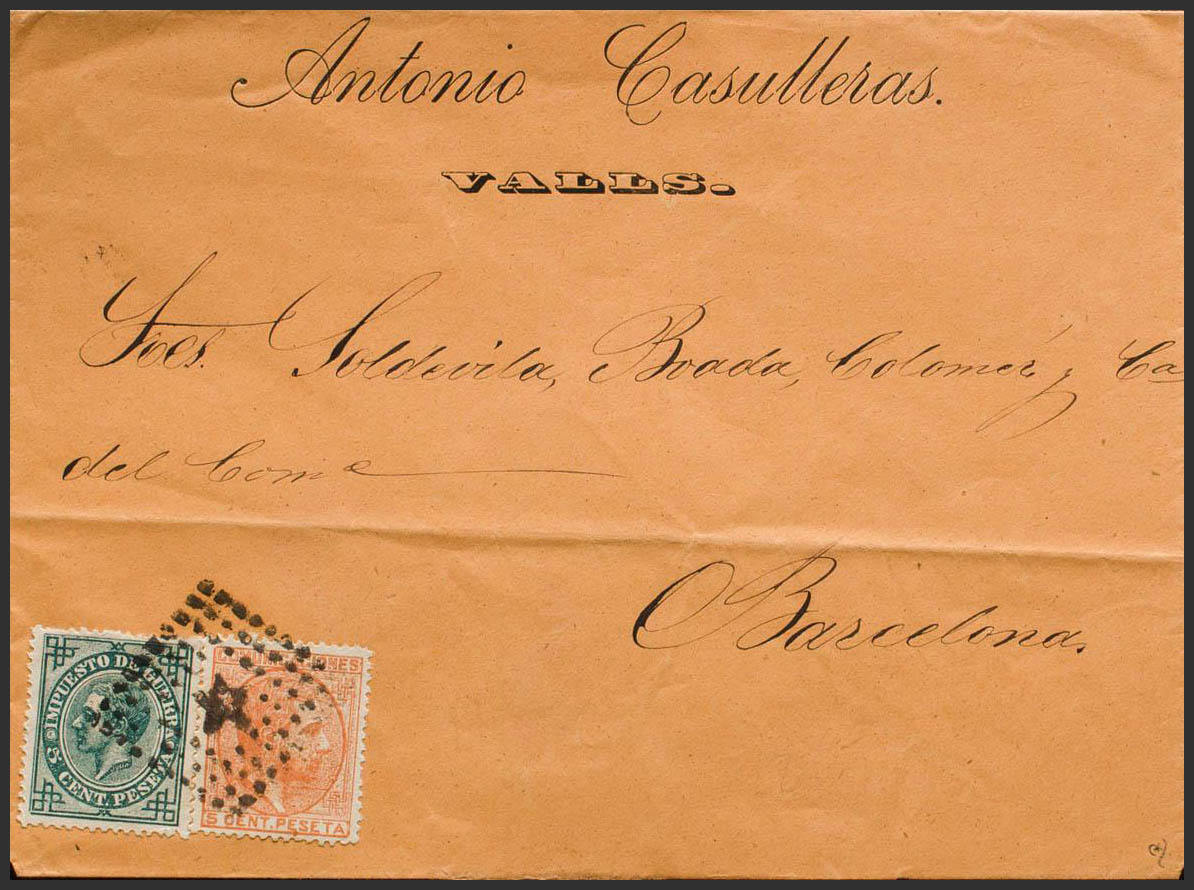 Antonio Casulleras.
VALLS.
Soldevila, Boada, Colomer, y Ca
del Come
Barcelona.
IMPUESTO DE GUERRA
5 CENT. PESETA
COMUNICACIONES
5 CENT. PESETA